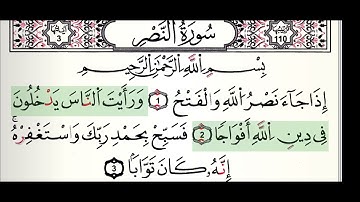 سُورَةُ النَّصْرِ
110
3
بِسْمِ اللَّهِ الرَّحْمَٰنِ الرَّحِيمِ
إِذَا جَآءَ نَصْرُ اللَّهِ وَالْفَتْحُ 1 وَرَأَيْتَ النَّاسَ يَدْخُلُونَ
فِي دِينِ اللَّهِ أَفْوَاجًا 2 فَسَبِّحْ بِحَمْدِ رَبِّكَ وَاسْتَغْفِرْهُ ۚ
إِنَّهُ كَانَ تَوَّابًا 3